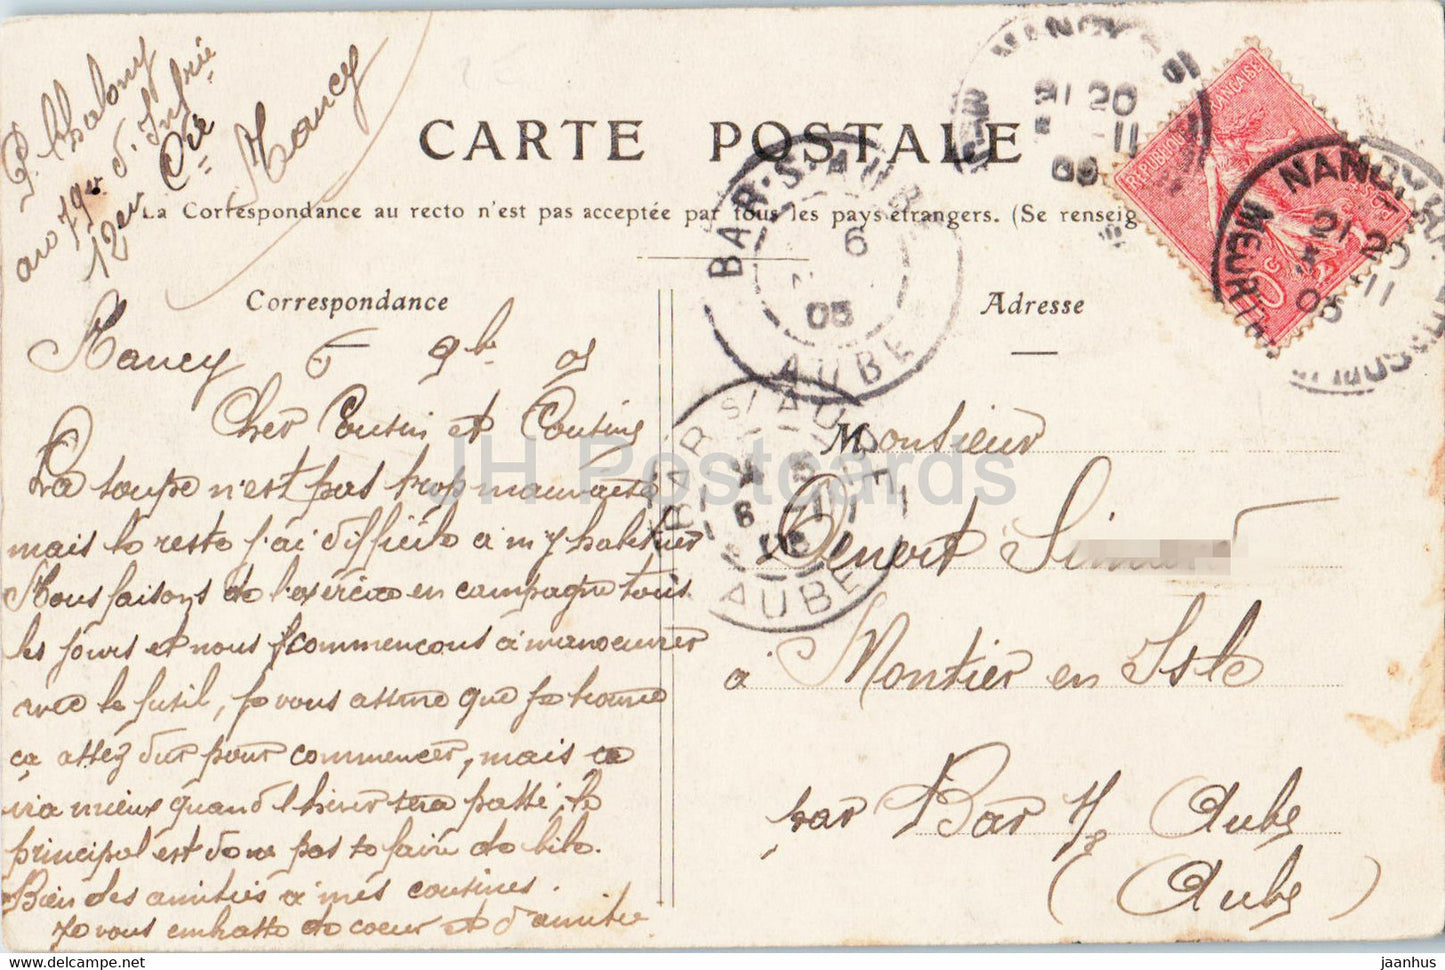 P. Chalony
au 79e d'Infrie
12e Cie
Nancy
CARTE POSTALE
La Correspondance au recto n'est pas acceptée par tous les pays étrangers. (Se renseig
Correspondance
Nancy 5 9bre 05
Cher Cousin et Cousine
La soupe n'est pas trop mauvaise
mais le reste j'ai difficile à m'y habituer
Nous faisons de l'exercice en campagne tous
les jours et nous commençons à manoeuvrer
avec le fusil, je vous assure que je trouve
ça assez dur pour commencer, mais ça
ira mieux quand l'hiver sera passé, le
principal est donc pas se faire de bile.
Bien des amitiés à mes cousines.
Je vous embrasse de coeur et d'amitié
Adresse
Monsieur
Benoit
à Montier en Isle
par Bar s/ Aube
(Aube)
NANCY
21 20
5 -11
05
NANCY
MEURTHE
21 20
5 -11
05
BAR-S-AUBE
6
05
AUBE
BAR S/ AUBE
6
05
AUBE
REPUBLIQUE FRANÇAISE
10c
JH Postcards
https://www.delcampe.net
jaanhus